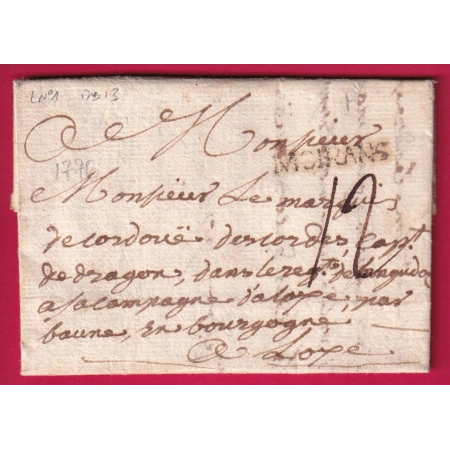 LN°1 13
A Monsieur
MOIRANS
1776
Monsieur Le marquis
12
de cordouë descordes, capt.
de dragon, dans le regt. de languedoc
a sa campagne d'aloxe, par
baune, en bourgogne
a Loxe